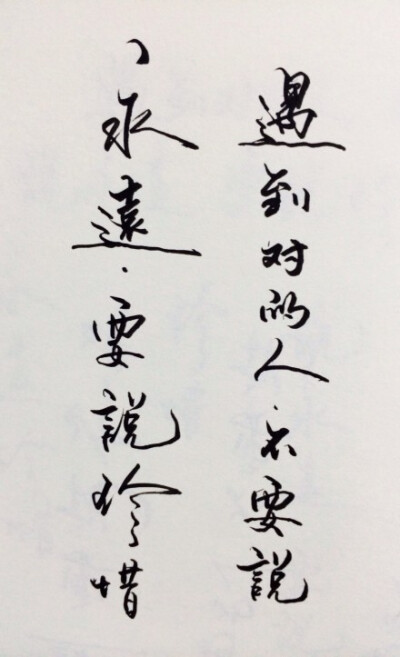 遇到对的人.不要説
永遠.要説珍惜